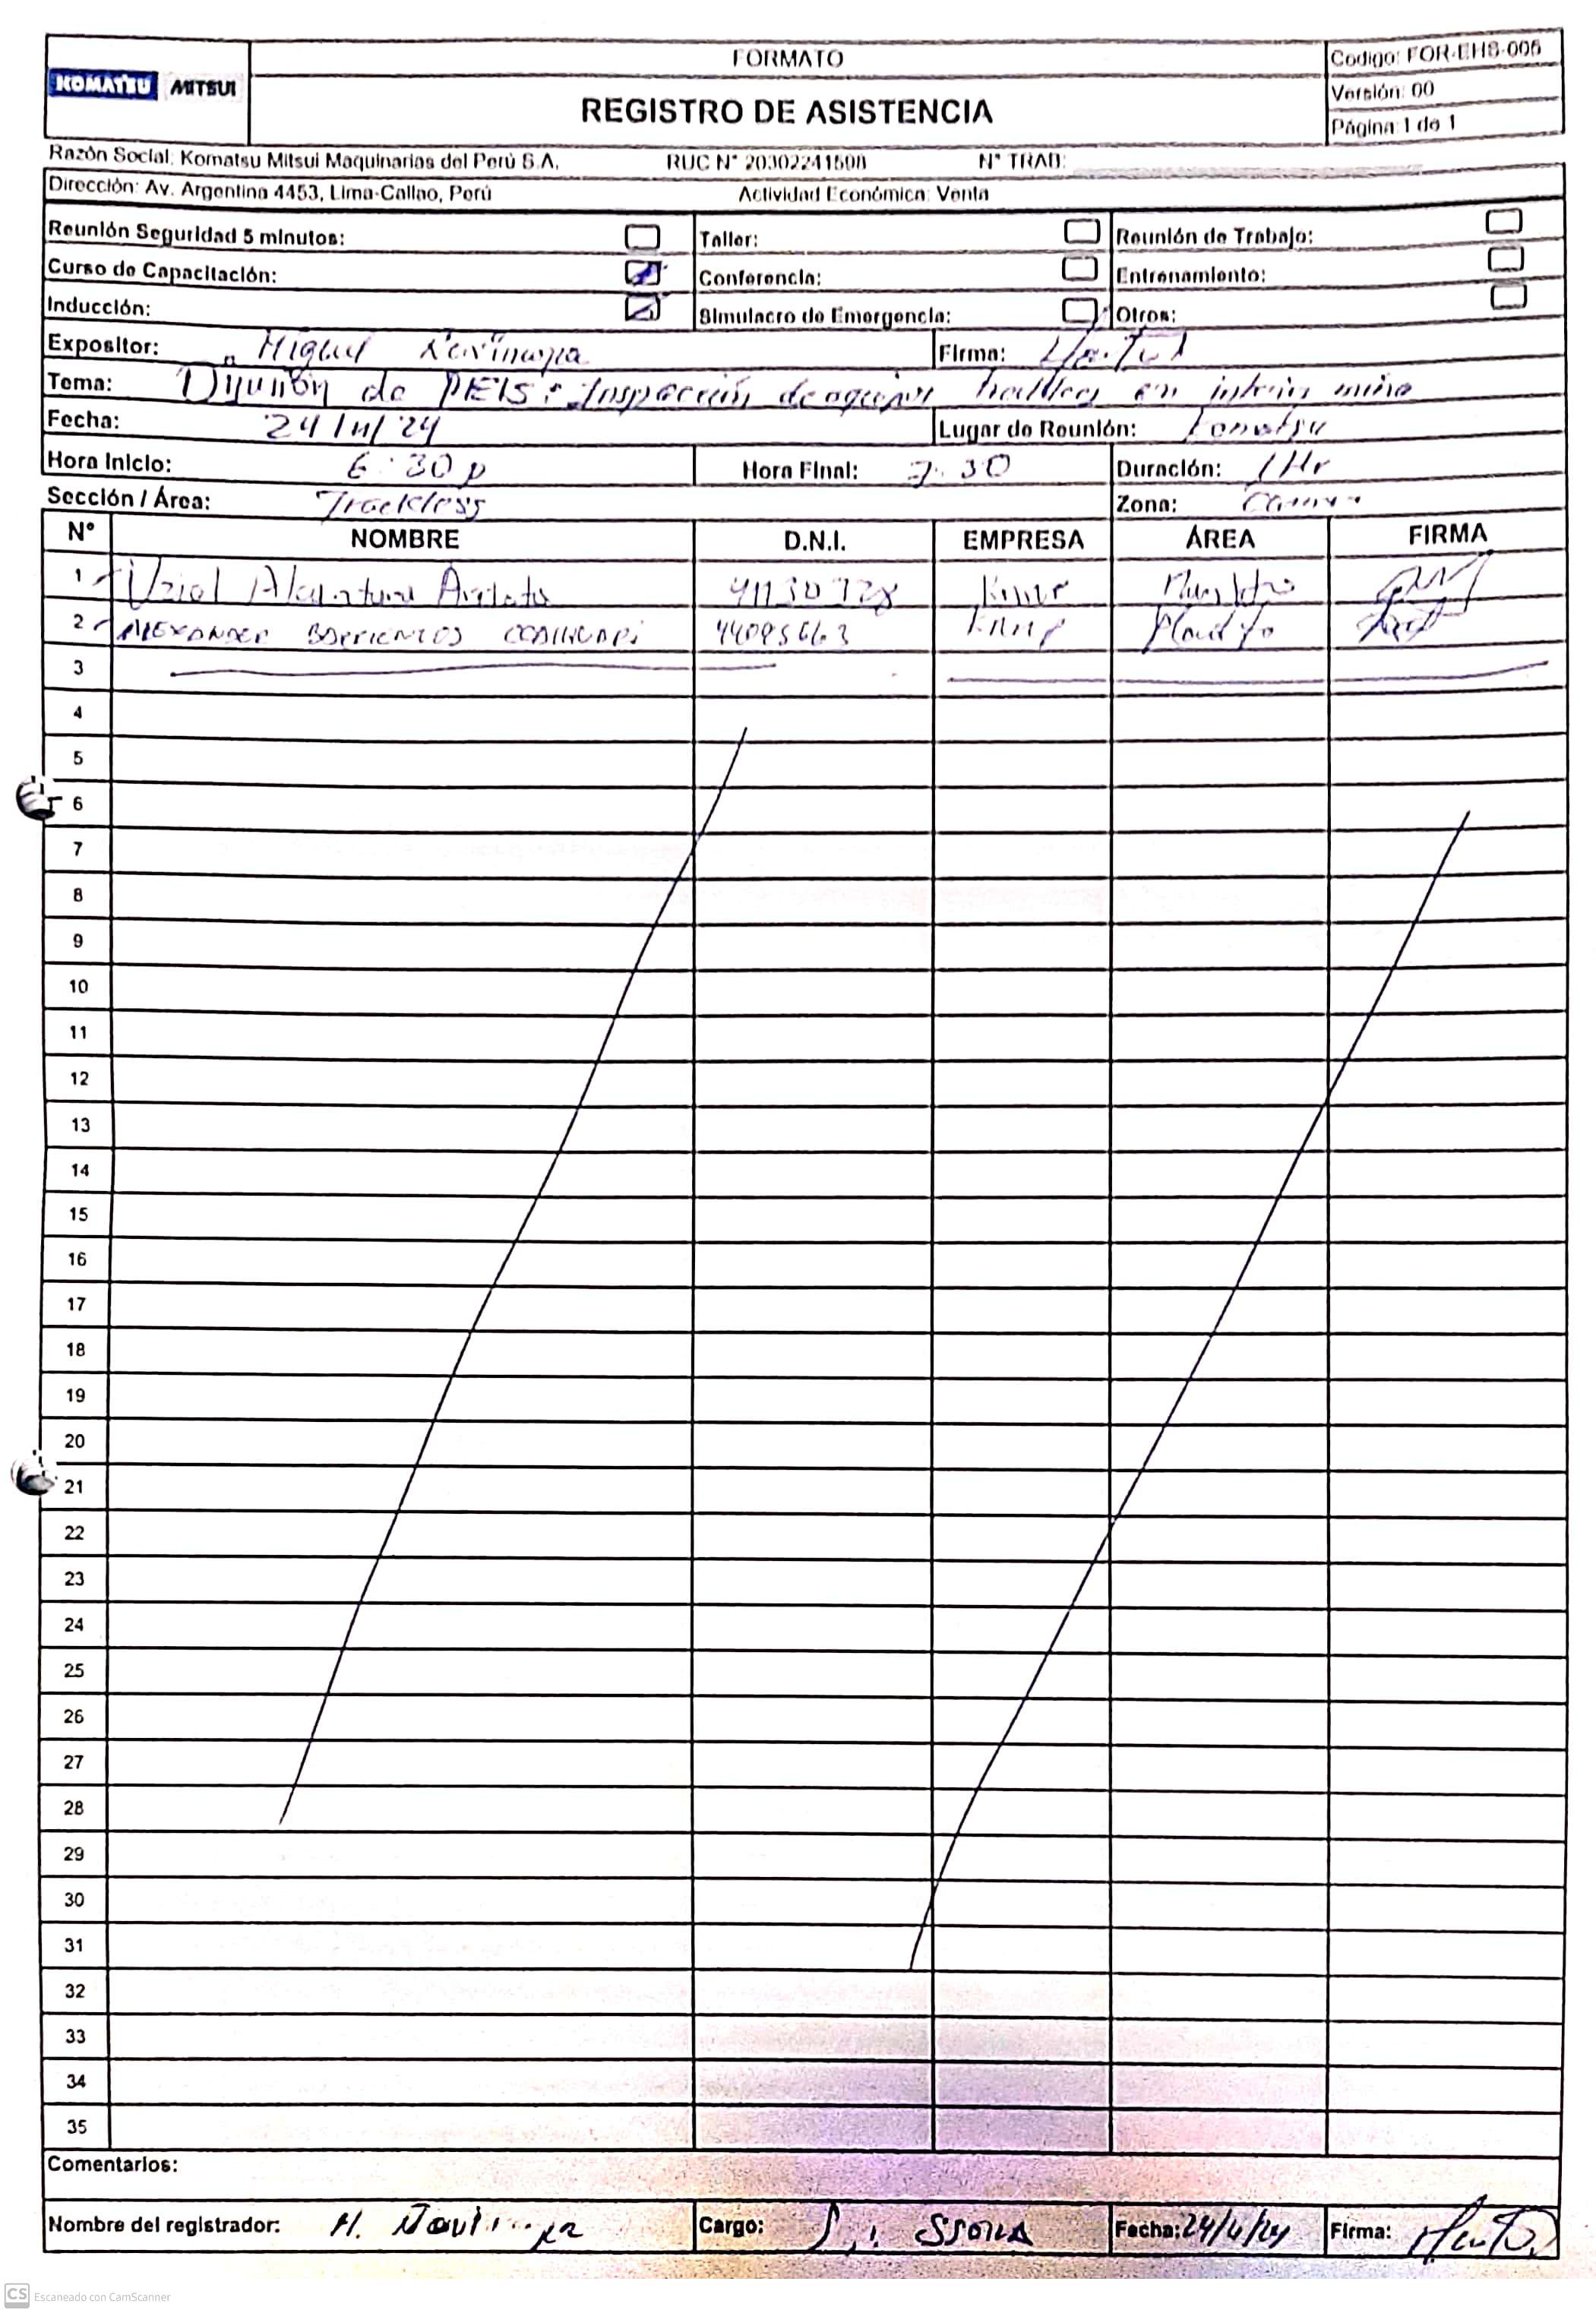 KOMATSU MITSUI
FORMATO
REGISTRO DE ASISTENCIA
Codigo: FOR-EHS-005
Versión: 00
Página: 1 de 1
Razón Social: Komatsu Mitsui Maquinarias del Perú S.A. RUC N° 20302241598 N° TRAB:
Dirección: Av. Argentina 4453, Lima-Callao, Perú Actividad Económica: Venta
Reunión Seguridad 5 minutos: Taller: Reunión de Trabajo:
Curso de Capacitación: Conferencia: Entrenamiento:
Inducción: Simulacro de Emergencia: Otros:
Expositor: Miguel Firma:
Tema: de PETS: Inspección de equipos en interior mina
Fecha: 24/11/24 Lugar de Reunión: Komatsu
Hora Inicio: 6:30 p Hora Final: 7:30 Duración: 1Hr
Sección / Área: Trackless Zona:
N° NOMBRE D.N.I. EMPRESA ÁREA FIRMA
1 Uziel
2 ALEXANDER BARRIENTOS 44095663
3
4
5
6
7
8
9
10
11
12
13
14
15
16
17
18
19
20
21
22
23
24
25
26
27
28
29
30
31
32
33
34
35
Comentarios:
Nombre del registrador: M. Cargo: SSOMA Fecha: 24/4/24 Firma:
CS Escaneado con CamScanner